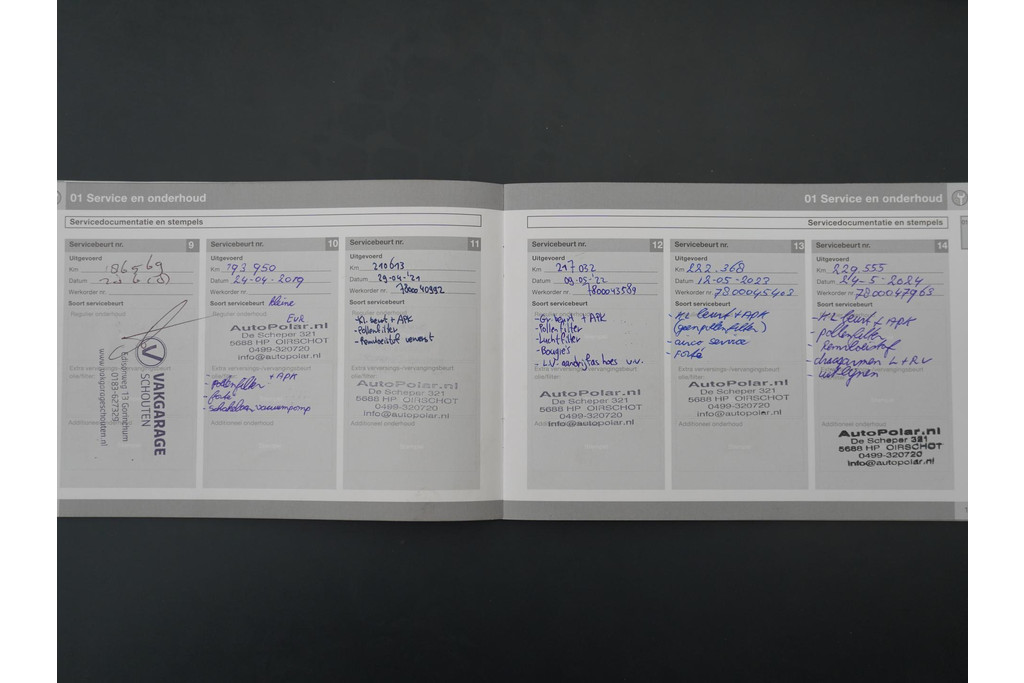 01 Service en onderhoud
Servicedocumentatie en stempels
Servicebeurt nr. 9
Uitgevoerd
Km 186969
Datum
Soort servicebeurt
Regulier onderhoud
VAKGARAGE
SCHOUTEN
13 Gorinchem
0183-627329
www.vakgarageschouten.nl
Additioneel onderhoud
Servicebeurt nr. 10
Uitgevoerd
Km 193950
Datum 24-04-2019
Werkorder nr.
Soort servicebeurt kleine
Regulier onderhoud EUR
AutoPolar.nl
De Scheper 321
5688 HP OIRSCHOT
0499-320720
info@autopolar.nl
Extra verversings-/vervangingsbeurt
olie/filter:
- pollenfilter + APK
- forté
- vacuumpomp
Additioneel onderhoud
Servicebeurt nr. 11
Uitgevoerd
Km 210613
Datum 29-04-'21
Werkorder nr. 780040992
Soort servicebeurt
- Kl. beurt + APK
- Pollenfilter
- Remvloeistof ververst
Extra verversings-/vervangingsbeurt
olie/filter:
AutoPolar.nl
De Scheper 321
5688 HP OIRSCHOT
0499-320720
info@autopolar.nl
Additioneel onderhoud
01 Service en onderhoud
Servicedocumentatie en stempels
Servicebeurt nr. 12
Uitgevoerd
Km 217032
Datum 09-05-'22
Werkorder nr. 7800043589
Soort servicebeurt
- Gr. beurt + APK
- Pollenfilter
- Luchtfilter
- Bougies
- L.V. aandrijfas hoes v.v.
Extra verversings-/vervangingsbeurt
olie/filter:
AutoPolar.nl
De Scheper 321
5688 HP OIRSCHOT
0499-320720
info@autopolar.nl
Additioneel onderhoud
Servicebeurt nr. 13
Uitgevoerd
Km 222.368
Datum 12-05-2023
Werkorder nr. 7800045403
Soort servicebeurt
- Kl beurt + APK
(geen pollenfilter)
- airco service
- forté
Extra verversings-/vervangingsbeurt
olie/filter:
AutoPolar.nl
De Scheper 321
5688 HP OIRSCHOT
0499-320720
info@autopolar.nl
Additioneel onderhoud
Servicebeurt nr. 14
Uitgevoerd
Km 229.555
Datum 24-5-2024
Werkorder nr. 7800047963
Soort servicebeurt
- KL beurt + APK
- pollenfilter
- Remvloeistof
- draagarmen L+R V
- uitlijnen
Additioneel onderhoud
AutoPolar.nl
De Scheper 321
5688 HP OIRSCHOT
0499-320720
info@autopolar.nl